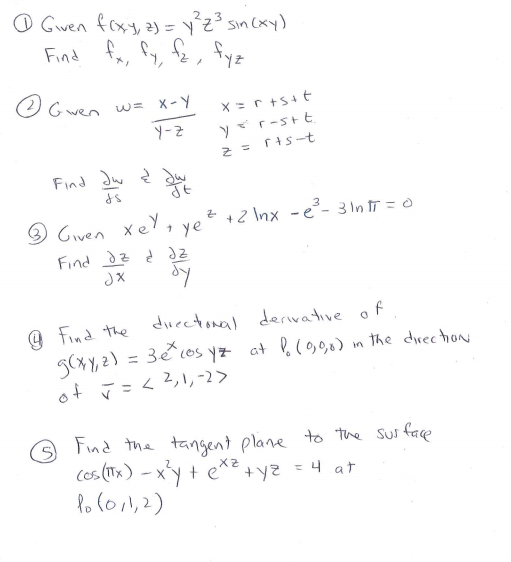 ① Given f(x,y,z) = y²z³ sin(xy)
Find fx, fy, fz, fyz
② Given w = (x-y)/(y-z)
x = r+s+t
y = r-s+t
z = r+s-t
Find ∂w/∂s & ∂w/∂t
③ Given xe^y + ye^z + 2 ln x - e³ - 3 ln π = 0
Find ∂z/∂x & ∂z/∂y
④ Find the directional derivative of
g(x,y,z) = 3e^x cos yz at P₀(0,0,0) in the direction
of v̄ = <2,1,-2>
⑤ Find the tangent plane to the surface
cos(πx) - x²y + e^xz + yz = 4 at
P₀(0,1,2)